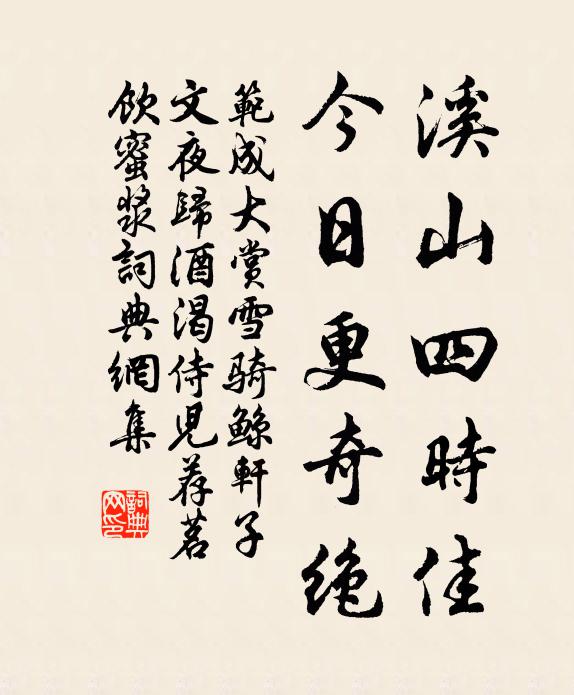 溪山四時佳
今日更奇絶
範成大賞雪骑鲸軒子
文夜歸酒渴侍兒荐茗
飲蜜漿詞典網集
詞典
网印